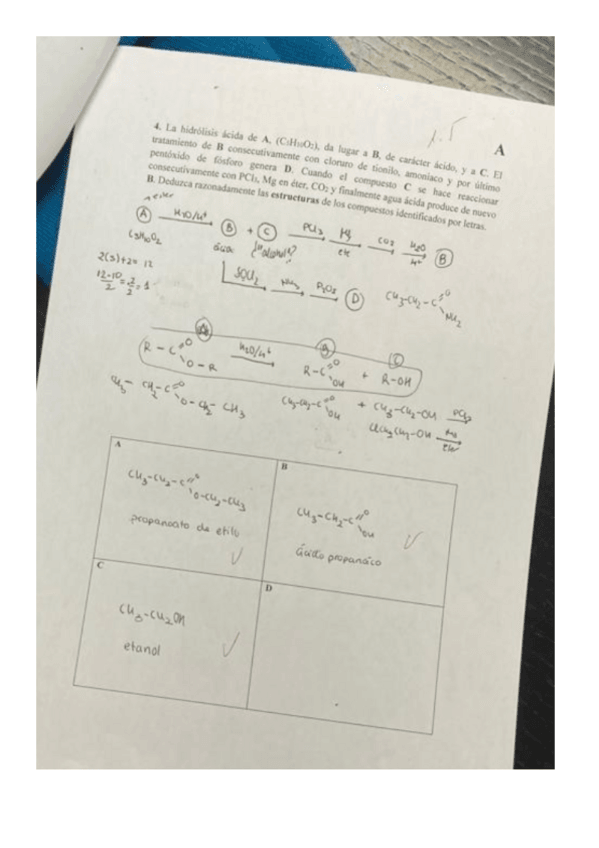 1.5
A
4. La hidrólisis ácida de A, (C₅H₁₀O₂), da lugar a B, de carácter ácido, y a C. El
tratamiento de B consecutivamente con cloruro de tionilo, amoniaco y por último
pentóxido de fósforo genera D. Cuando el compuesto C se hace reaccionar
consecutivamente con PCl₃, Mg en éter, CO₂ y finalmente agua ácida produce de nuevo
B. Deduzca razonadamente las estructuras de los compuestos identificados por letras.
A H₂O/H⁺ B + C PCl₃ Mg éter CO₂ H₂O H⁺ B
C₅H₁₀O₂ ácido ¿"alcohol"?
2(5)+2= 12
12-10/2 = 2/2 = 1
SOCl₂ NH₃ P₂O₅ D
CH₃-CH₂-C=O NH₂
A B C
R-C=O O-R H₂O/H⁺ R-C=O OH + R-OH
CH₃-CH₂-C=O O-CH₂-CH₃ CH₃-CH₂-C=O OH + CH₃-CH₂-OH PCl₃
Mg
A
CH₃-CH₂-C=O O-CH₂-CH₃
propanoato de etilo
B
CH₃-CH₂-C=O OH
ácido propanóico
C
CH₃-CH₂OH
etanol
D